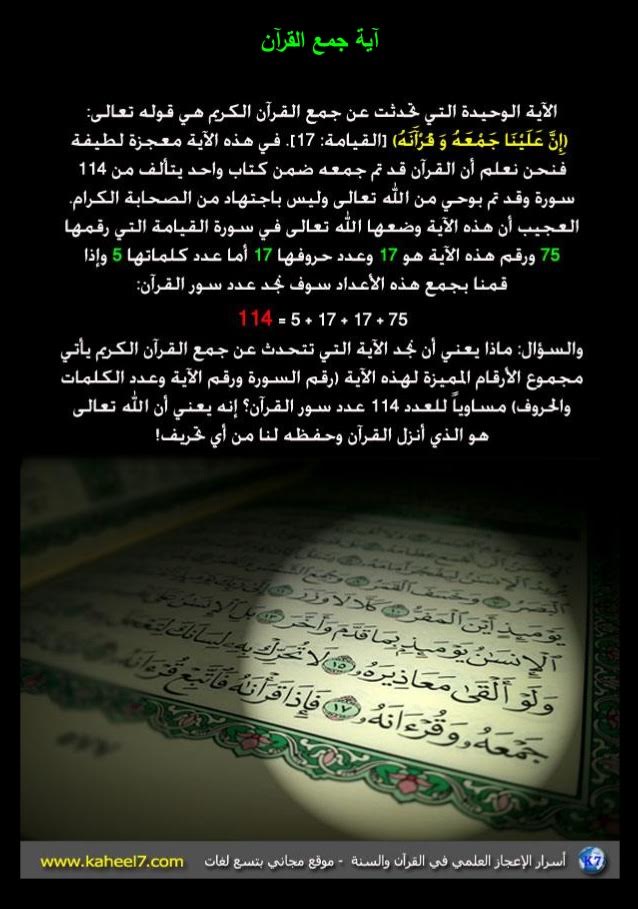 آية جمع القرآن
الآية الوحيدة التي تحدثت عن جمع القرآن الكريم هي قوله تعالى:
(إِنَّ عَلَيْنَا جَمْعَهُ وَ قُرْآَنَهُ) [القيامة: 17]. في هذه الآية معجزة لطيفة
فنحن نعلم أن القرآن قد تم جمعه ضمن كتاب واحد يتألف من 114
سورة وقد تم بوحي من الله تعالى وليس باجتهاد من الصحابة الكرام.
العجيب أن هذه الآية وضعها الله تعالى في سورة القيامة التي رقمها
75 ورقم هذه الآية هو 17 وعدد حروفها 17 أما عدد كلماتها 5 وإذا
قمنا بجمع هذه الأعداد سوف نجد عدد سور القرآن:
75 + 17 + 17 + 5 = 114
والسؤال: ماذا يعني أن نجد الآية التي تتحدث عن جمع القرآن الكريم يأتي
مجموع الأرقام المميزة لهذه الآية (رقم السورة ورقم الآية وعدد الكلمات
والحروف) مساوياً للعدد 114 عدد سور القرآن؟ إنه يعني أن الله تعالى
هو الذي أنزل القرآن وحفظه لنا من أي تحريف!
يَوْمَئِذٍ أَيْنَ الْمَفَرُّ ١٠ كَلَّا لَا وَزَرَ ١١
الْإِنسَنُ يَوْمَئِذٍ بِمَا قَدَّمَ وَأَخَّرَ ١٣ بَلِ الْإِنسَنُ عَلَى
وَلَوْ أَلْقَى مَعَاذِيرَهُ ١٥ لَا تُحَرِّكْ بِهِ لِسَانَكَ لِتَعْجَلَ
جَمْعَهُ وَقُرْءَانَهُ ١٧ فَإِذَا قَرَأْنَهُ فَاتَّبِعْ قُرْءَانَهُ
أسرار الإعجاز العلمي في القرآن والسنة - موقع مجاني بتسع لغات www.kaheel7.com
K7